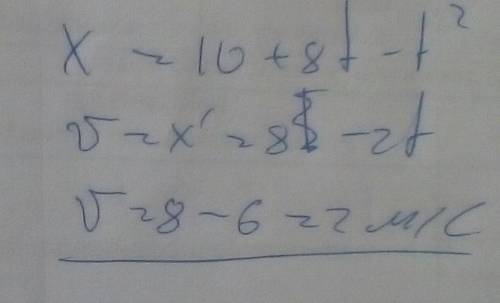 x = 10 + 8t - t²
v = x' = 8 - 2t
v = 8 - 6 = 2 м/с